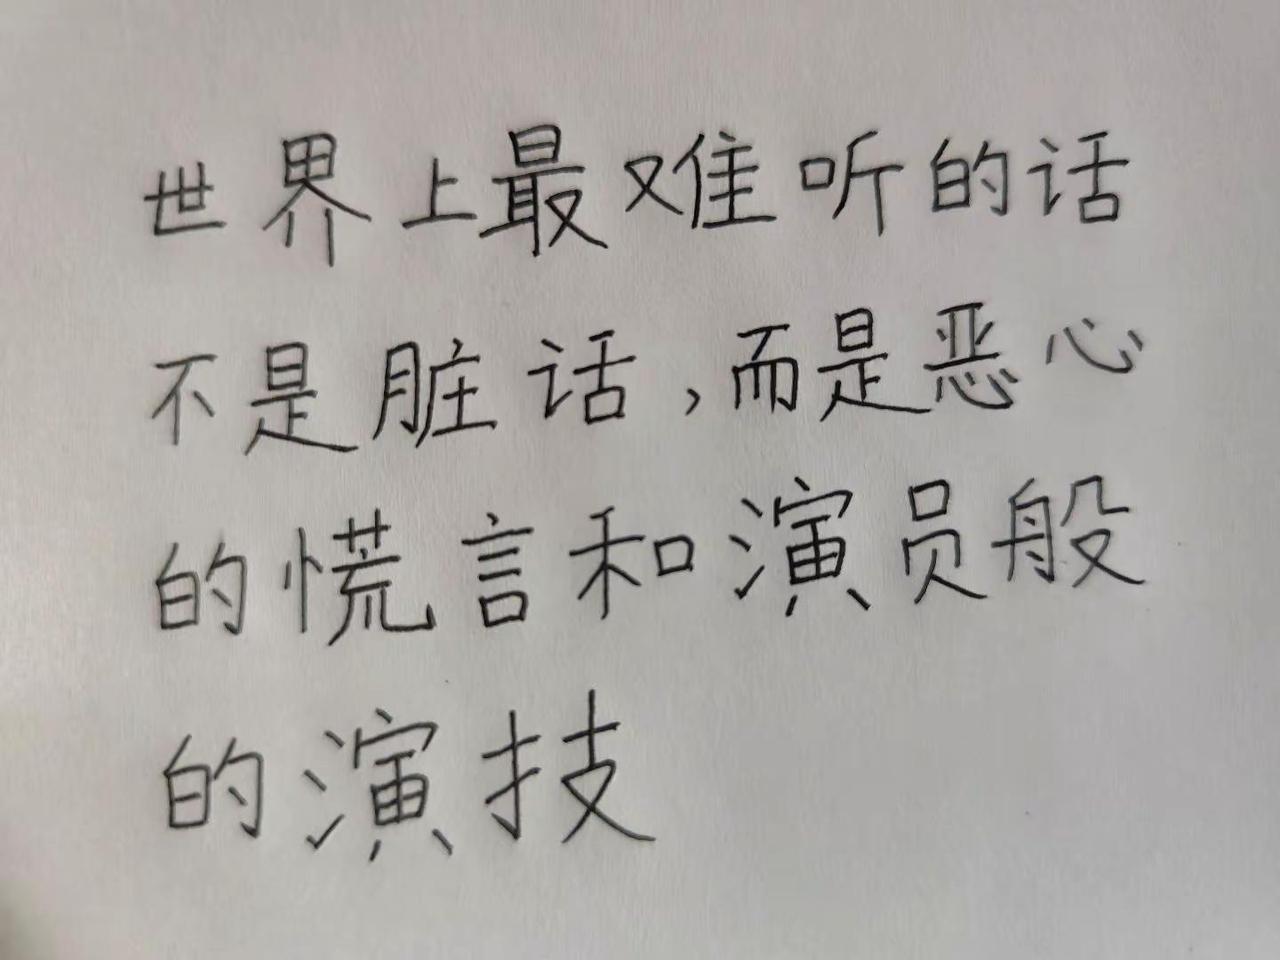 世界上最难听的话
不是脏话，而是恶心
的慌言和演员般
的演技